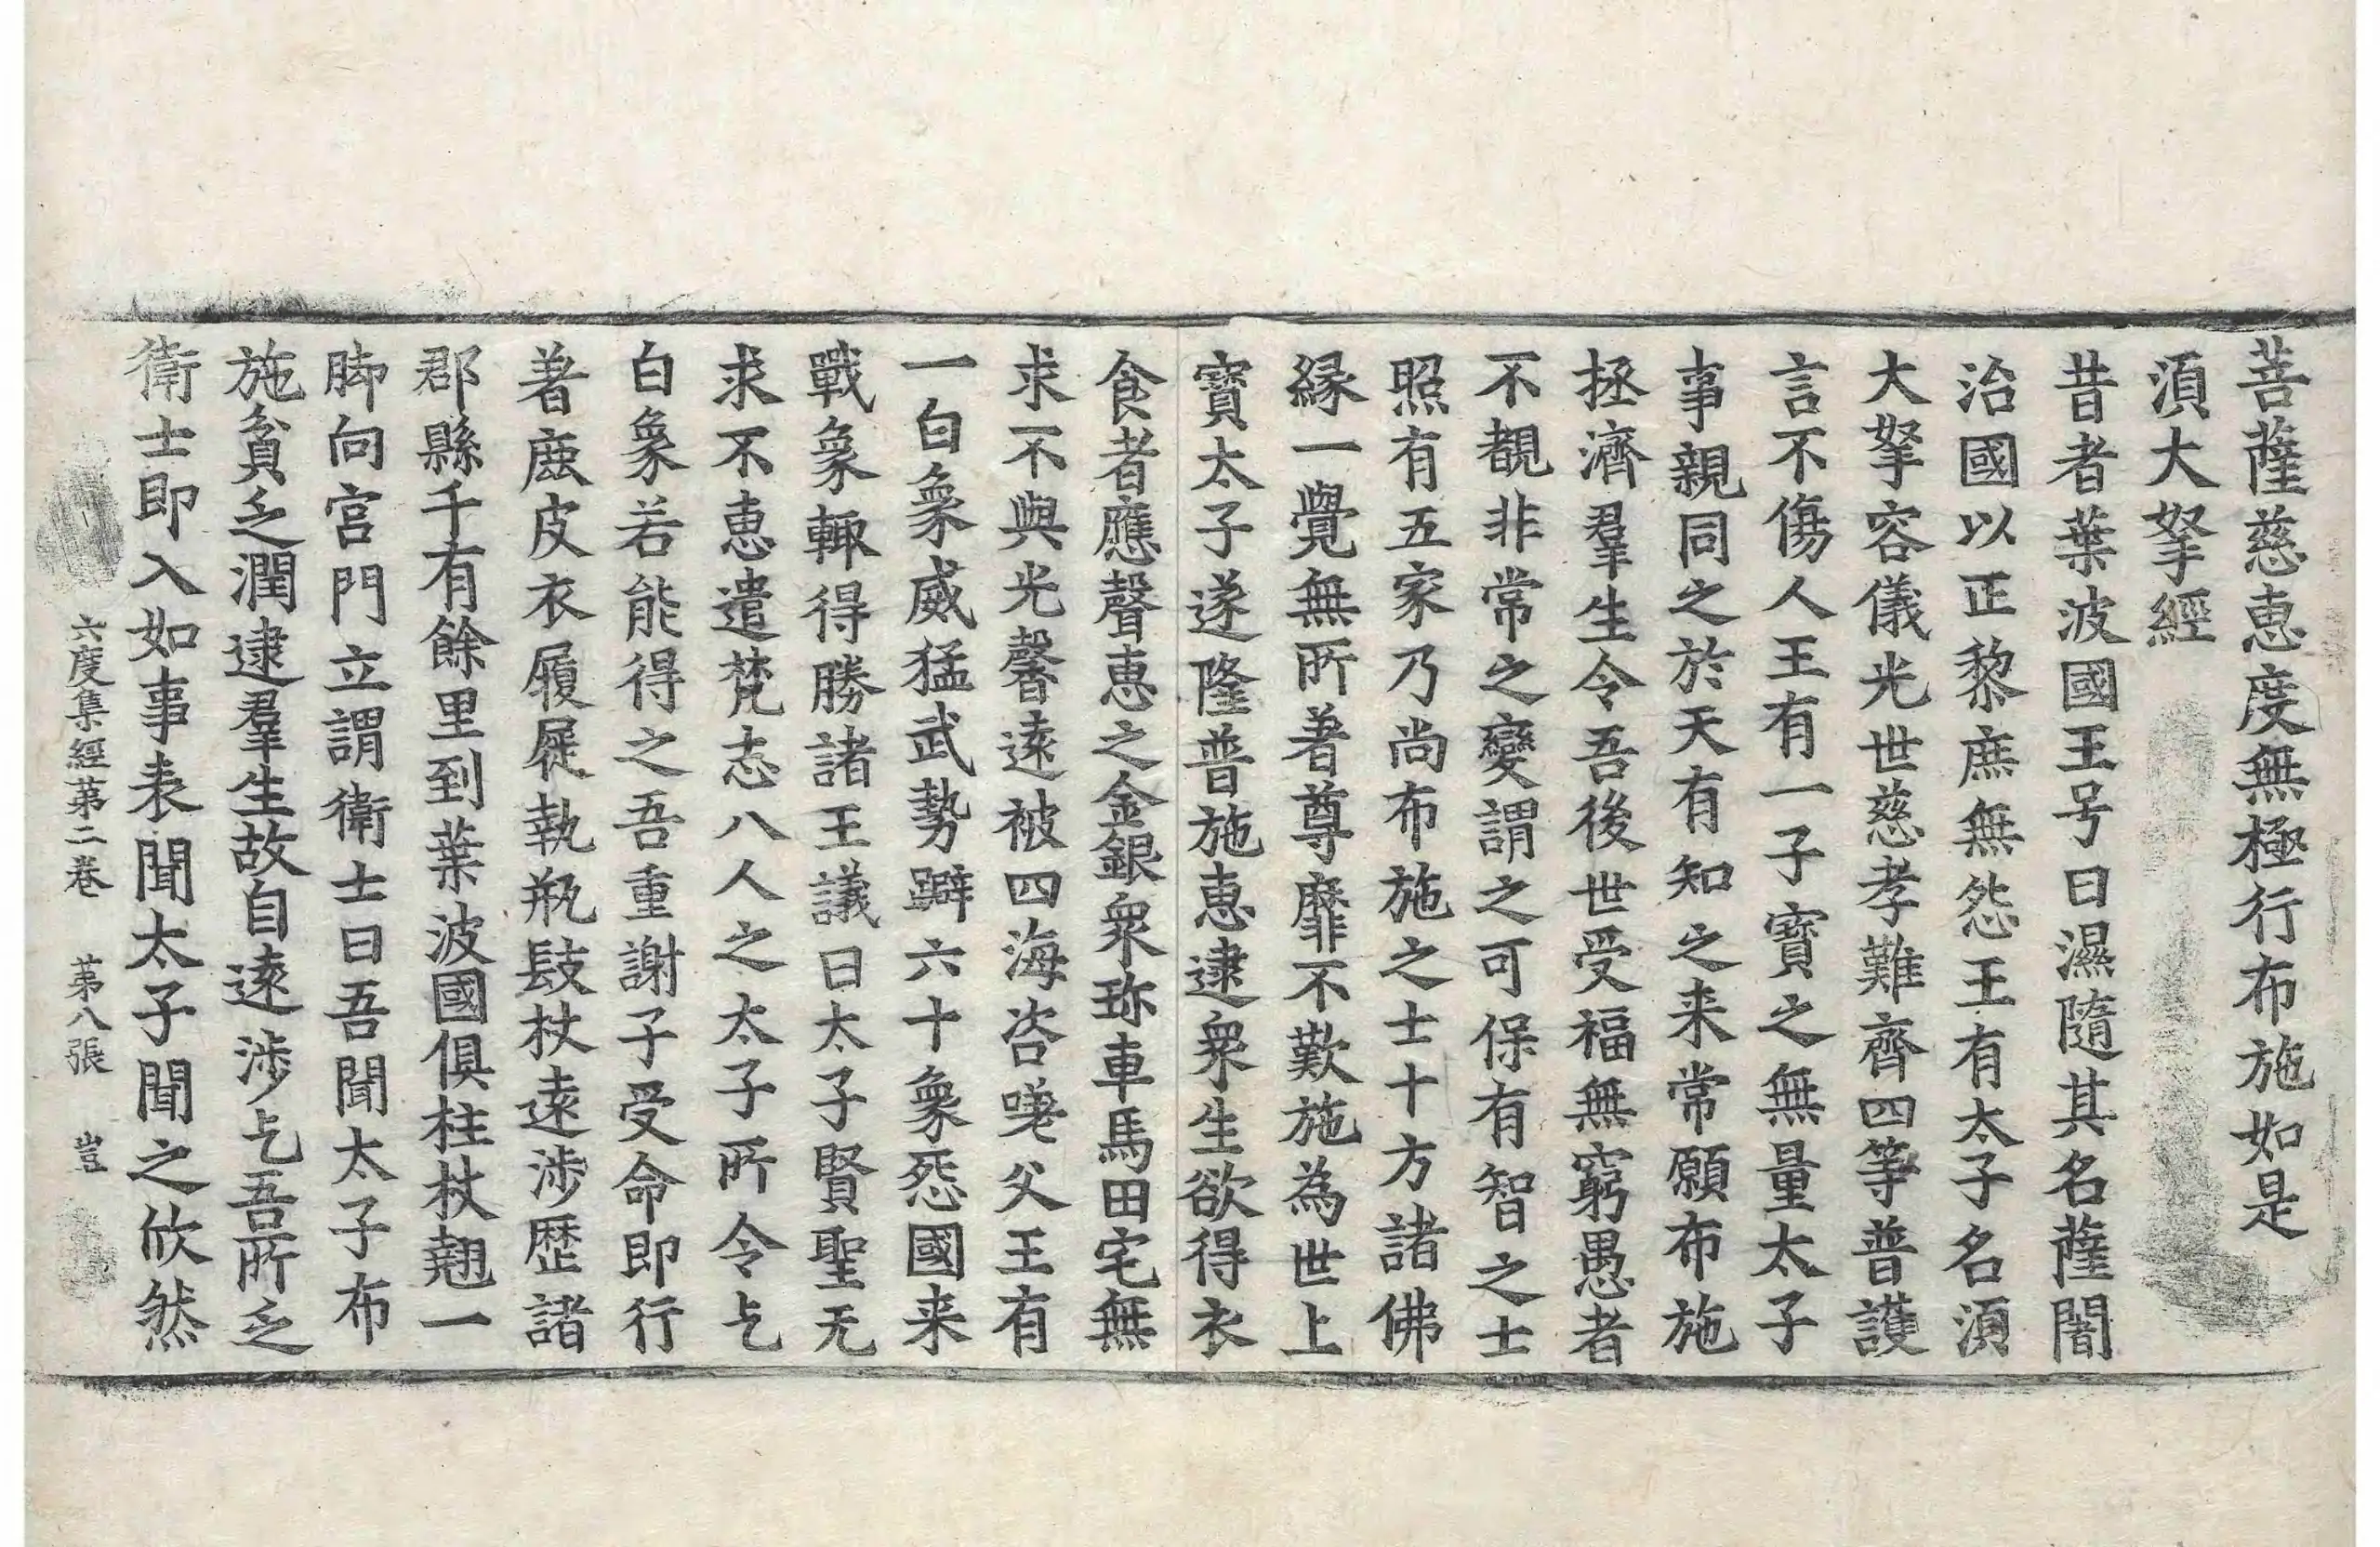 菩薩慈恵度無極行布施如是
湏大拏經
昔者葉波國王号曰濕隨其名薩闍
治國以正黎庶無怨王有太子名湏
大拏容儀光世慈孝難齊四等普護
言不傷人王有一子寳之無量太子
事親同之於天有知之来常願布施
拯濟羣生令吾後世受福無窮愚者
不覩非常之變謂之可保有智之士
照有五家乃尚布施之士十方諸佛
縁一覺無所著尊靡不歎施為世上
寳太子遂隆普施恵逮衆生欲得衣
食者應聲恵之金銀衆珎車馬田宅無
求不與光馨遠被四海咨嗟父王有
一白象威猛武勢躃六十象怨國来
戰象輙得勝諸王議曰太子賢聖无
求不恵遣梵志八人之太子所令乞
白象若能得之吾重謝子受命即行
著鹿皮衣履屣執瓶跂杖遠涉歴諸
郡縣千有餘里到葉波國俱柱杖翹一
脚向宫門立謂衛士曰吾聞太子布
施貧乏潤逮羣生故自遠涉乞吾所乏
衛士即入如事表聞太子聞之欣然
六度集經苐二卷　苐八張　豈